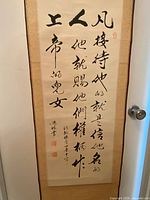 凡接待他的就是信他名的
人他就賜他們權柄作
上帝的兒女